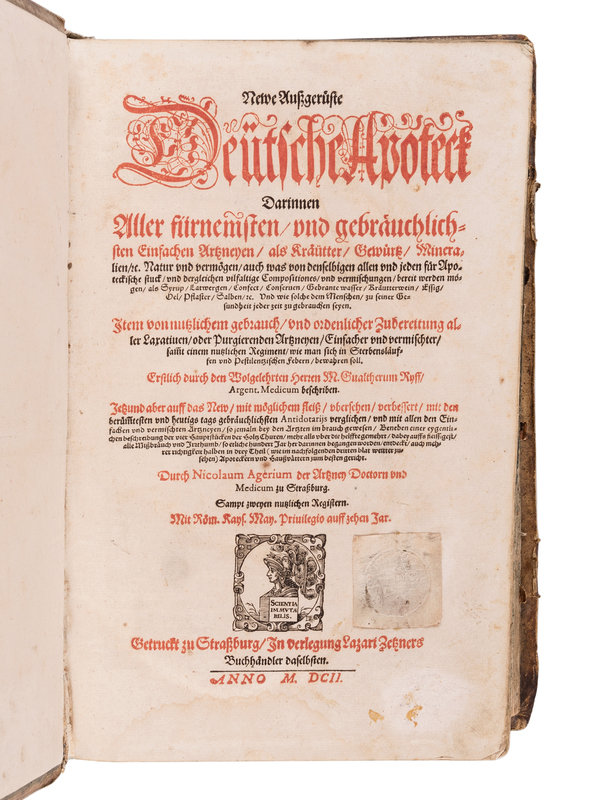 Newe Außgerüste
Deütsche Apoteck
Darinnen
Aller fürnem̃sten / vnd gebräuchlich-
sten Einfachen Artzneyen / als Kräutter / Gewürtz / Minera-
lien / ꝛc. Natur vnd vermögen / auch was von denselbigen allen vnd jeden für Apo-
teckische stuck / vnd dergleichen vilfaltige Compositiones / vnd vermischungen / bereit werden mö-
gen / als Syrup / Latwergen / Confect / Conseruen / Gebrante wasser / Kräutterwein / Essig /
Oel / Pflaster / Salben / ꝛc. Vnd wie solche dem Menschen / zu seiner Ge-
sundheit jeder zeit zu gebrauchen seyen.
Item von nutzlichem gebrauch / vnd ordenlicher Zubereitung al-
ler Laxatiuen / oder Purgierenden Artzneyen / Einfacher vnd vermischter /
sam̃t einem nutzlichen Regiment / wie man sich in Sterbensläuf-
fen vnd Pestilentzischen Febern / bewahren soll.
Erstlich durch den Wolgelehrten Herren M. Gualtherum Ryff /
Argent. Medicum beschriben.
Jetzund aber auff das New / mit möglichem fleiß / vbersehen / verbessert / mit den
berüm̃testen vnd heutigs tags gebräuchlichsten Antidotarijs verglichen / vnd mit allen den Ein-
fachen vnd vermischten Artzneyen / so jemaln bey den Artzten im brauch gewesen / Beneben einer eygent-
chen beschreibung der vier Hauptstücken der Holtz Churen / mehr als vber die helffte gemehrt / dabey auffs fleissigest /
alle Mißbräuch vnd Irrthumb / so etliche hundert Jar her darinnen begangen worden / entdeckt / auch meh-
rer richtigkeit halben in drey Theil ( wie im nachfolgenden dritten blat weitter zu-
sehen ) Apoteckern vnd Haußvättern zum besten gericht.
Durch Nicolaum Agerium der Artzney Doctorn vnd
Medicum zu Straßburg.
Sampt zweyen nutzlichen Registern.
Mit Röm. Kays. May. Priuilegio auff zehen Jar.
SCIENTIA
IMMVTA
BILIS.
Getruckt zu Straßburg / In verlegung Lazari Zetzners
Buchhändler daselbsten.
ANNO M. DCII.